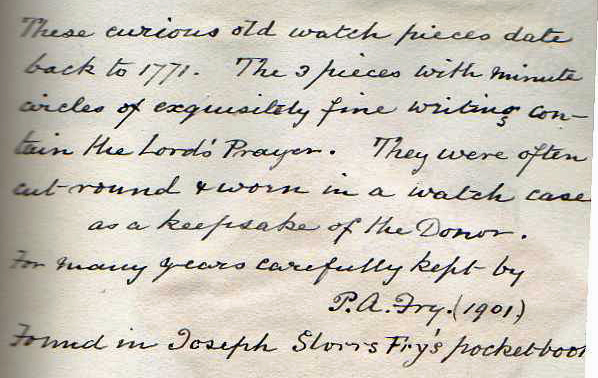 These curious old watch pieces date
back to 1771. The 3 pieces with minute
circles of exquisitely fine writing con-
tain the Lord's Prayer. They were often
cut round & worn in a watch case
as a keepsake of the Donor.
For many years carefully kept by
P.A. Fry. (1901)
Found in Joseph Storrs Fry's pocketbook